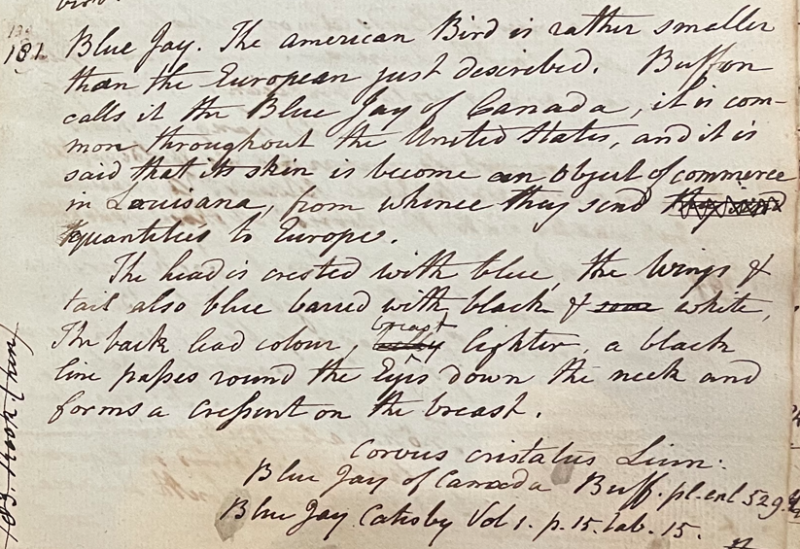 181. Blue Jay. The american Bird is rather smaller
than the European just described. Buffon
calls it the Blue Jay of Canada, it is com-
mon throughout the United States, and it is
said that its skin is become an object of commerce
in Louisana, from whence they send they send
quantities to Europe.
The head is crested with blue, the wings &
tail also blue barred with black & white,
The back lead colour, breast lighter, a black
line passes round the Eyes down the neck and
forms a cressent on the breast.
Corvus cristatus Linn:
Blue Jay of Canada Buff. pl. enl 529.
Blue Jay Catesby Vol 1. p. 15. tab. 15.